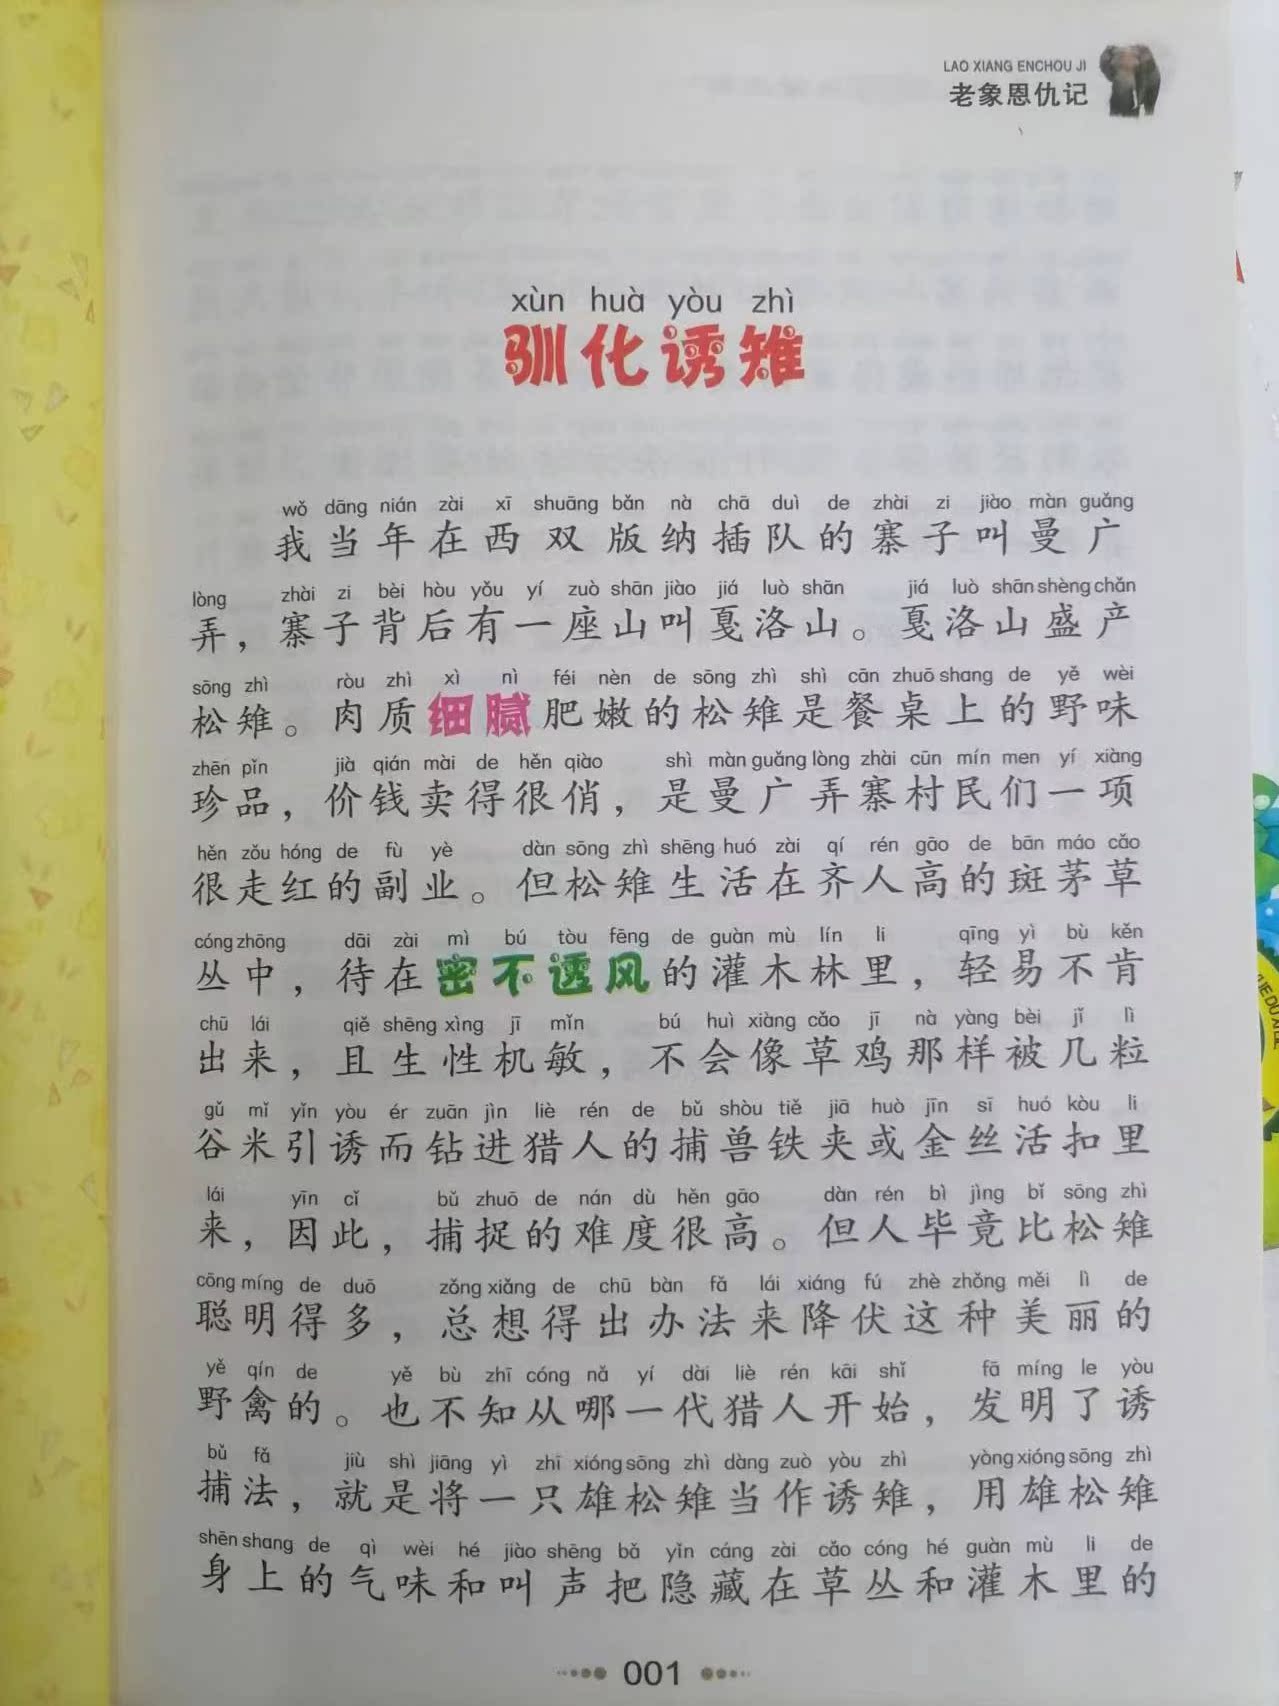 LAO XIANG ENCHOU JI
老象恩仇记
xùn huà yòu zhì
驯化诱雉
wǒ dāng nián zài xī shuāng bǎn nà chā duì de zhài zi jiào màn guǎng
我当年在西双版纳插队的寨子叫曼广
lòng zhài zi bèi hòu yǒu yí zuò shān jiào jiá luò shān jiá luò shān shèng chǎn
弄，寨子背后有一座山叫戛洛山。戛洛山盛产
sōng zhì ròu zhì xì nì féi nèn de sōng zhì shì cān zhuō shang de yě wèi
松雉。肉质细腻肥嫩的松雉是餐桌上的野味
zhēn pǐn jià qián mài de hěn qiào shì màn guǎng lòng zhài cūn mín men yí xiàng
珍品，价钱卖得很俏，是曼广弄寨村民们一项
hěn zǒu hóng de fù yè dàn sōng zhì shēng huó zài qí rén gāo de bān máo cǎo
很走红的副业。但松雉生活在齐人高的斑茅草
cóng zhōng dāi zài mì bú tòu fēng de guàn mù lín li qīng yì bù kěn
丛中，待在密不透风的灌木林里，轻易不肯
chū lái qiě shēng xìng jī mǐn bú huì xiàng cǎo jī nà yàng bèi jǐ lì
出来，且生性机敏，不会像草鸡那样被几粒
gǔ mǐ yǐn yòu ér zuān jìn liè rén de bǔ shòu tiě jiā huò jīn sī huó kòu li
谷米引诱而钻进猎人的捕兽铁夹或金丝活扣里
lái yīn cǐ bǔ zhuō de nán dù hěn gāo dàn rén bì jìng bǐ sōng zhì
来，因此，捕捉的难度很高。但人毕竟比松雉
cōng míng de duō zǒng xiǎng de chū bàn fǎ lái xiáng fú zhè zhǒng měi lì de
聪明得多，总想得出办法来降伏这种美丽的
yě qín de yě bù zhī cóng nǎ yí dài liè rén kāi shǐ fā míng le yòu
野禽的。也不知从哪一代猎人开始，发明了诱
bǔ fǎ jiù shì jiāng yì zhī xióng sōng zhì dàng zuò yòu zhì yòng xióng sōng zhì
捕法，就是将一只雄松雉当作诱雉，用雄松雉
shēn shang de qì wèi hé jiào shēng bǎ yǐn cáng zài cǎo cóng hé guàn mù li de
身上的气味和叫声把隐藏在草丛和灌木里的
001